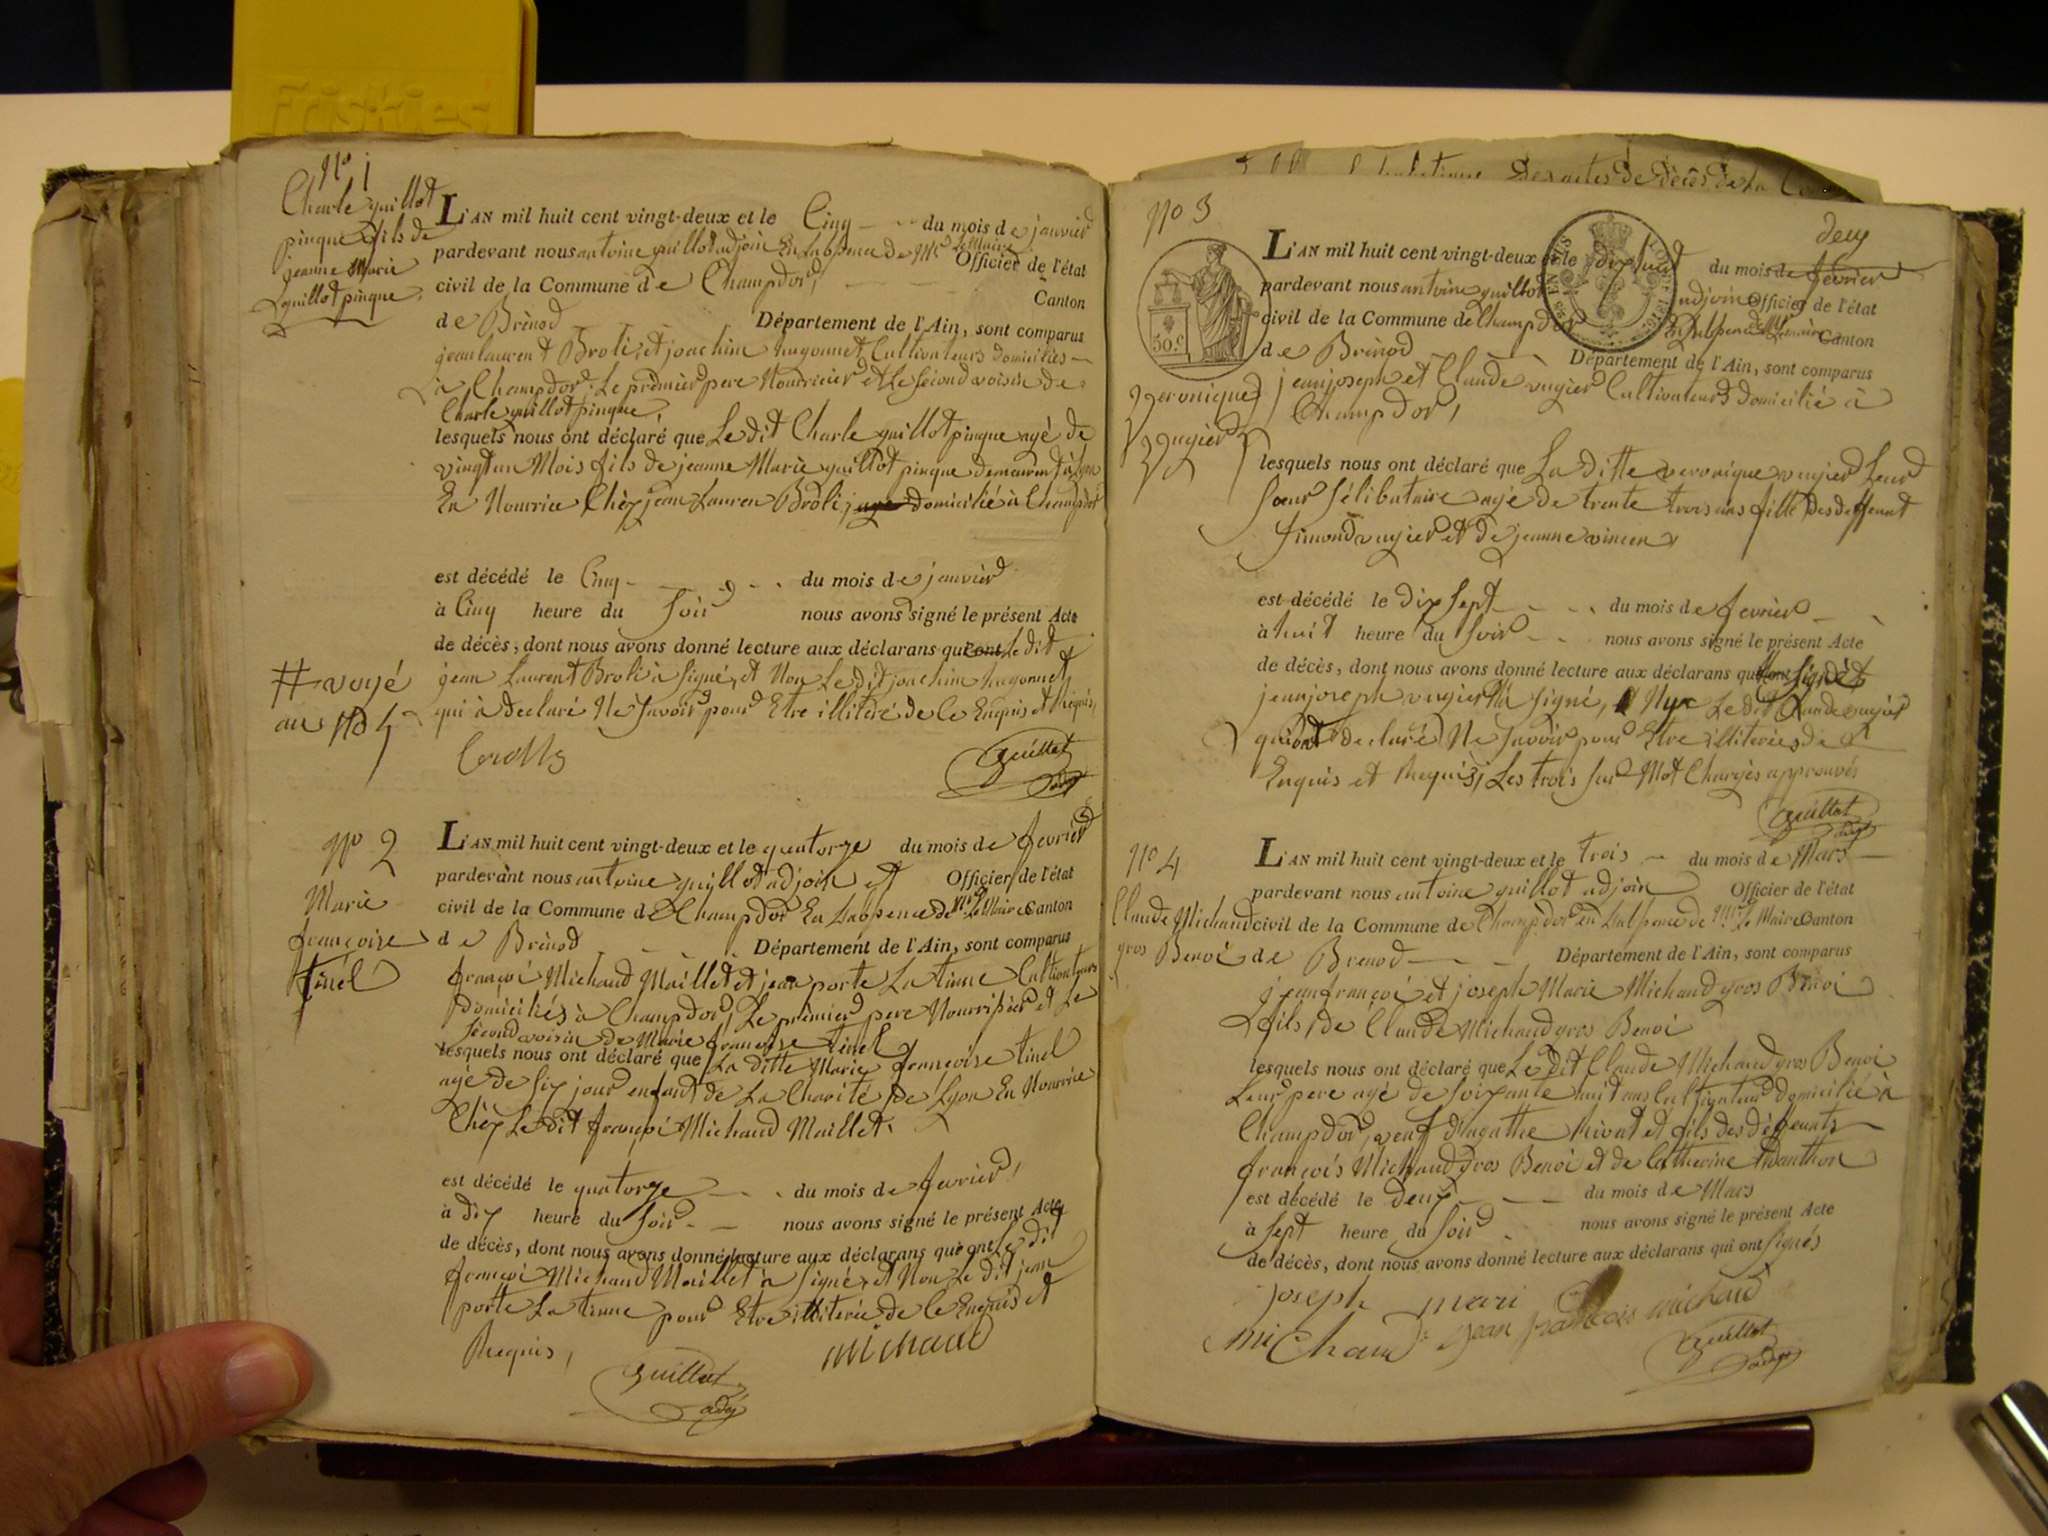 Friskies
N° 1
Charle guillot
pinque fils de
jeanne Marie
guillot pinque
L'AN mil huit cent vingt-deux et le Cinq du mois de janvier
pardevant nous antoine guillot adjoin En Labsence de Mr Le Maire Officier de l'état
civil de la Commune de Champdor, Canton
de Brénod Département de l'Ain, sont comparus
jean laurent Broli, et joachim hugonnet Cultivateurs domiciliés
à Champdor, Le premier pere Nourricier et Le second voisin de
Charle guillot pinque,
lesquels nous ont déclaré que Le dit Charle guillot pinque agé de
vingt un Mois fils de jeanne Marie guillot pinque demeurent à Lyon
En Nourrice Chèz jean Lauren Broli, domicilié à Champdor
est décédé le Cinq du mois de janvier
à Cinq heure du Soir nous avons signé le présent Acte
de décès, dont nous avons donné lecture aux déclarans qui ont Le dit
jean Laurent Broli à Signé, et Non Le dit joachim hugonnet
qui à declaré Ne Savoir pour Etre illiteré de Ce Enquis et Requis,
# voyé
au N°
guillot
adj
N° 2
Marie
françoise
tinel
L'AN mil huit cent vingt-deux et le quatorze du mois de fevrier
pardevant nous antoine guillot adjoin Officier de l'état
civil de la Commune de Champdor En Labsence de Mr Le Maire Canton
de Brénod Département de l'Ain, sont comparus
françoi Michaud Maillet et jean porte La tinne Cultivateurs
Domiciliés à Champdor, Le premier pere Nourrisier et Le
Sécond voisin de Marie françoise tinel
lesquels nous ont déclaré que La ditte Marie françoise tinel
agé de Six jour enfant de La Charité de Lyon En Nourrice
Chèz Le dit françoi Michaud Maillet.
est décédé le quatorze du mois de fevrier
à dix heure du Soir nous avons signé le présent Acte
de décès, dont nous avons donné lecture aux déclarans qui ont Le dit
françoi Michaud Maillet à Signé, et Non Le dit jean
porte La tinne pour Etre illiterée de Ce Enquis et
Requis,
michaud
guillot
adj
des actes de décès de la
deux
N° 3
50.c
L'AN mil huit cent vingt-deux et le dix huit du mois de fevrier
pardevant nous antoine guillot adjoin Officier de l'état
civil de la Commune de Champdor Canton
de Brénod Département de l'Ain, sont comparus
veronique
vugier
jean joseph et Claude vugier Cultivateurs domicilié à
Champdor,
lesquels nous ont déclaré que La ditte veronique vugier Leur
Sœur Sélibataire agé de trente trois ans fille des deffunt
Simond vugier et de jeanne vincen
est décédé le dix Sept du mois de fevrier
à huit heure du Soir nous avons signé le présent Acte
de décès, dont nous avons donné lecture aux déclarans qui ont Signé
jean joseph vugier à Signé, Non Le dit Claude vugier
qui declaré Ne Savoir pour Etre illiterées de Ce
Enquis et Requis, Les trois Sur Mot Chargés approuvés
guillot
adj
N° 4
Claude Michaud
gros Benoi
L'AN mil huit cent vingt-deux et le trois du mois de Mars
pardevant nous antoine guillot adjoin Officier de l'état
civil de la Commune de Champdor en Labsence de Mr Le Maire Canton
de Brenod Département de l'Ain, sont comparus
jean françoi et joseph Marie Michaud gros Benoi
fils de Claude Michaud gros Benoi
lesquels nous ont déclaré que Le dit Claude Michaud gros Benoi
Leur pere agé de Soixante huit ans Cultivateur domicilié à
Champdor, veuf d'agathe Rivat et fils des deffunts
françois Michaud gros Benoi et de Catherine
est décédé le deux du mois de Mars
à Sept heure du Soir nous avons signé le présent Acte
de décès, dont nous avons donné lecture aux déclarans qui ont Signés
joseph mari
michaud jean francois michaud
guillot
adj